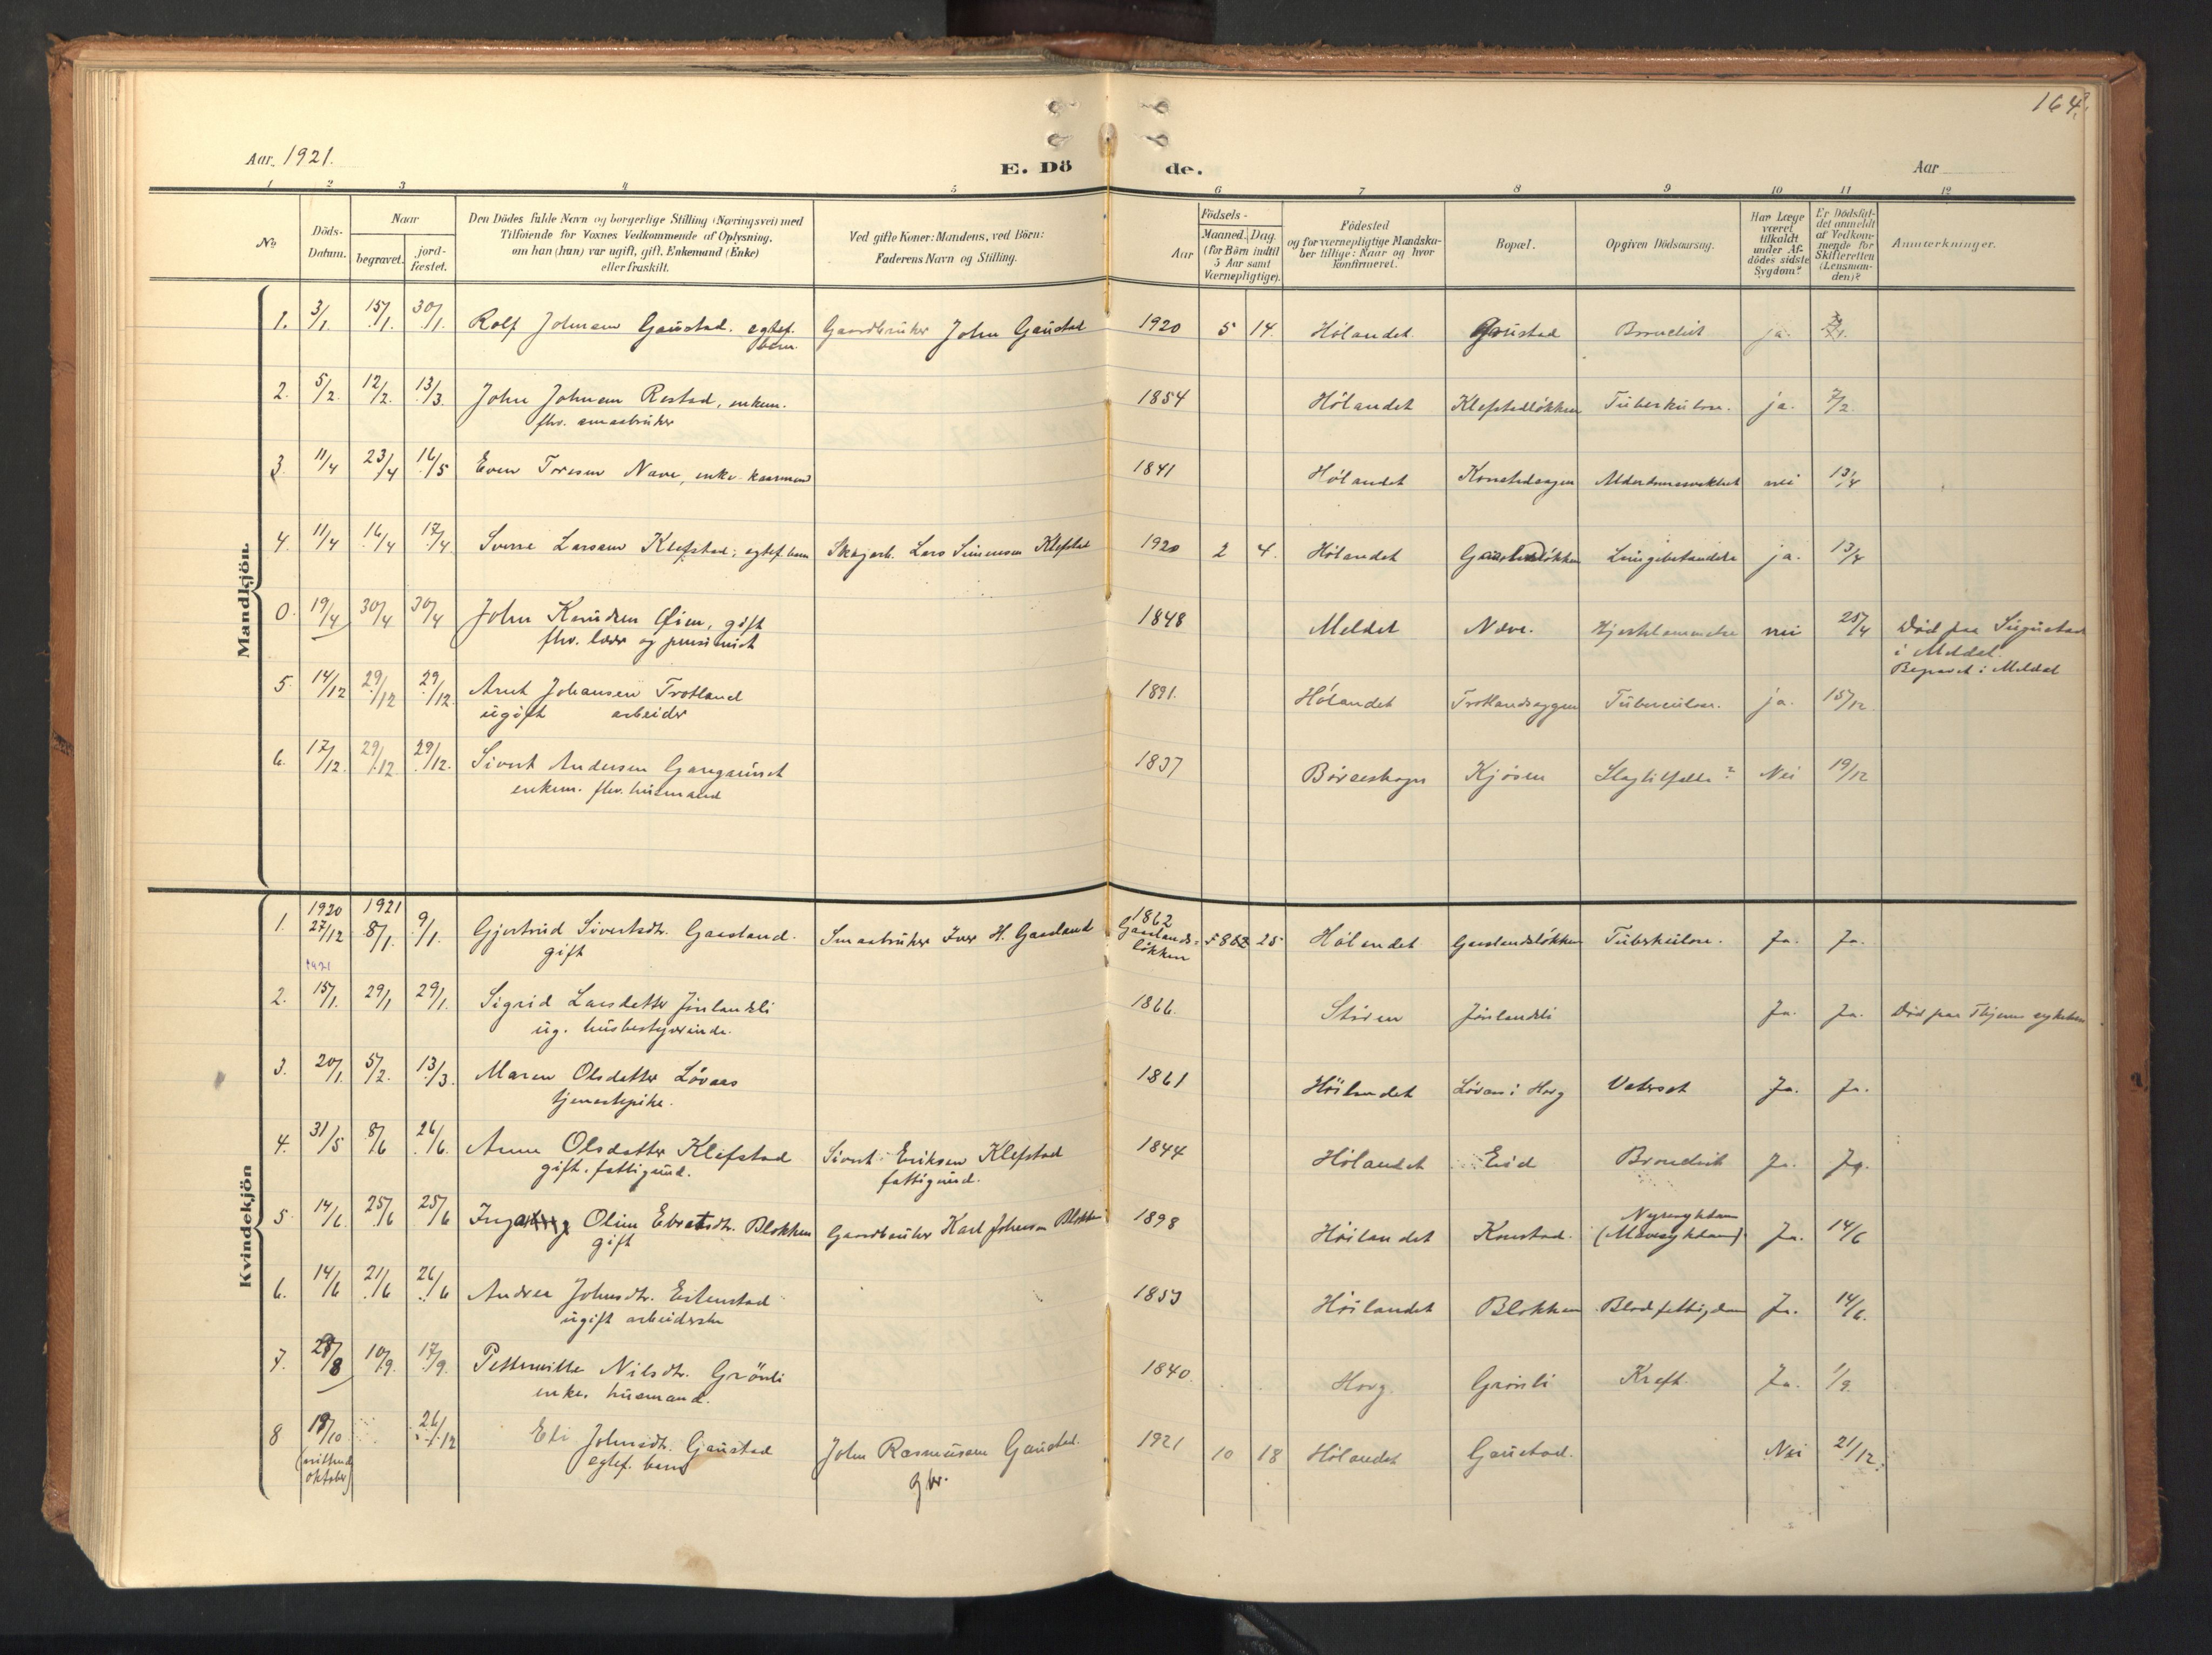 164.
Aar 1921.
E. Dö de.
Aar
1 2 3 4 5 6 7 8 9 10 11 12
No
Döds-Datum.
Naar
begravet.
jord-fæstet.
Den Dödes fulde Navn og borgerlige Stilling (Næringsvei) med
Tilföiende for Voxnes Vedkommende af Oplysning,
om han (hun) var ugift, gift, Enkemand (Enke)
eller fraskilt.
Ved gifte Koner: Mandens, ved Börn:
Faderens Navn og Stilling.
Födsels-
Aar
Maaned. Dag.
(for Börn indtil
5 Aar samt
Værnepligtige).
Födested
og for værnepligtige Mandska-
ber tillige: Naar og hvor
konfirmeret.
Bopæl.
Opgiven Dödsaarsag.
Har Læge
været
tilkaldt
under Af-
dödes sidste
Sygdom?
Er Dödsfal-
det anmeldt
af Vedkom-
mende for
Skifteretten
(Lensman-
den)?
Anmærkninger.
Mandkjön.
1. 3/1 15/1. 30/1. Rolf Johnsen Gaustad. egtef. Gaardbruker John Gaustad 1920 5 14. Hølandet. Gaustad ja.
barn
2. 5/2. 12/2. 13/3. John Johnsen Rostad, enkem. 1854 Hølandet Klefstadløkken Tuberkulose. ja. 7/2.
fhv. smaabruker
3. 11/4 23/4 16/5 Even Toresen Nave, enke- 1841 Hølandet nei 13/4
4. 11/4 16/4 17/4. Sverre Larsen Klefstad, egtef. barn Lars Simensen Klefstad 1920 2 4. Hølandet Lungebetændelse ja. 13/4
0. 19/4 30/4 30/4 John Knudsen Øien, gift 1848 Meldal Nave. Hjertelammelse nei 25/4 Død paa
fhv. lærer og pensionist i Meldal.
Begravet i Meldal
5. 14/12 29/12 29/12. Arnt Johansen Trotland 1891. Hølandet Trotlandseggen Tuberculose. ja. 15/12
ugift arbeider
6. 17/12. 29/12 29/12. Sivert Andersen 1837 Børseskogn Kjøsen Slagtilfælde? Nei 19/12
enkem. fhv. husmand
Kvindekjön
1920 1921 1862
1. 27/12 8/1. 9/1. Gjertrud Sivertsdtr. Gaasland. Smaabruker Iver H. Gaasland Gaaslands-
løkken 25 Hølandet Gaaslandsløkken Tuberkulose. Ja. Ja.
gift
1921
2. 15/1. 29/1 29/1. Sigrid Larsdatter 1866. Støren Ja. Ja. Død paa
ug. husbestyrerinde.
3. 20/1. 5/2. 13/3. Maren Olsdatter Løvaas 1861 Høilandet Løvaas i Horg Vatersot Ja. Ja.
tjenestepike.
4. 31/5 8/6 26/6. Anne Olsdatter Klefstad Sivert Eriksen Klefstad 1844 Hølandet Eid Ja. Ja.
gift. fattigund. fattigund.
5. 14/6 25/6 25/6 Inga Oline Blokken Gaardbruker Karl Johnsen Blokken 1898 Høilandet Ja. 14/6
gift
Nyresykdom
6. 14/6 21/6 26/6 Andrea Johnsdtr. Estenstad 1853 Høilandet Blokken Blodfattigdom Ja. 14/6.
ugift arbeiderske
7. 28/8 10/9. 17/9. Petternille Nilsdtr. Grønli 1840. Horg. Grønli Kreft. Ja. 1/9.
enke. husmand.
8 18/10 26/12 Eli Johnsdtr. Gaustad John Rasmussen Gaustad. 1921 10 18 Hølandet Gaustad. Nei 21/12.
egtef. barn gbr.
oktober)